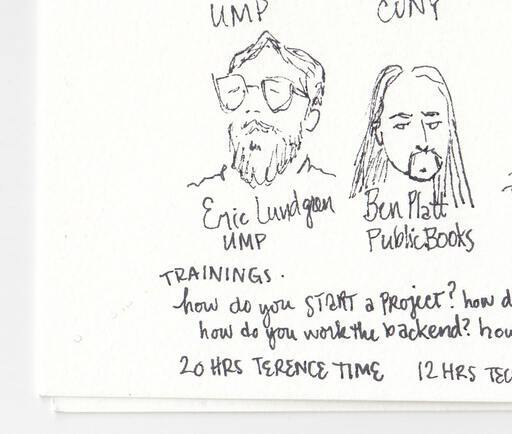 UMP CUNY
Eric Lundgren Ben Platt
UMP Public Books
TRAININGS.
how do you START a PROJECT? how d
how do you work the backend? how
20 HRS TERENCE TIME 12 HRS TEC